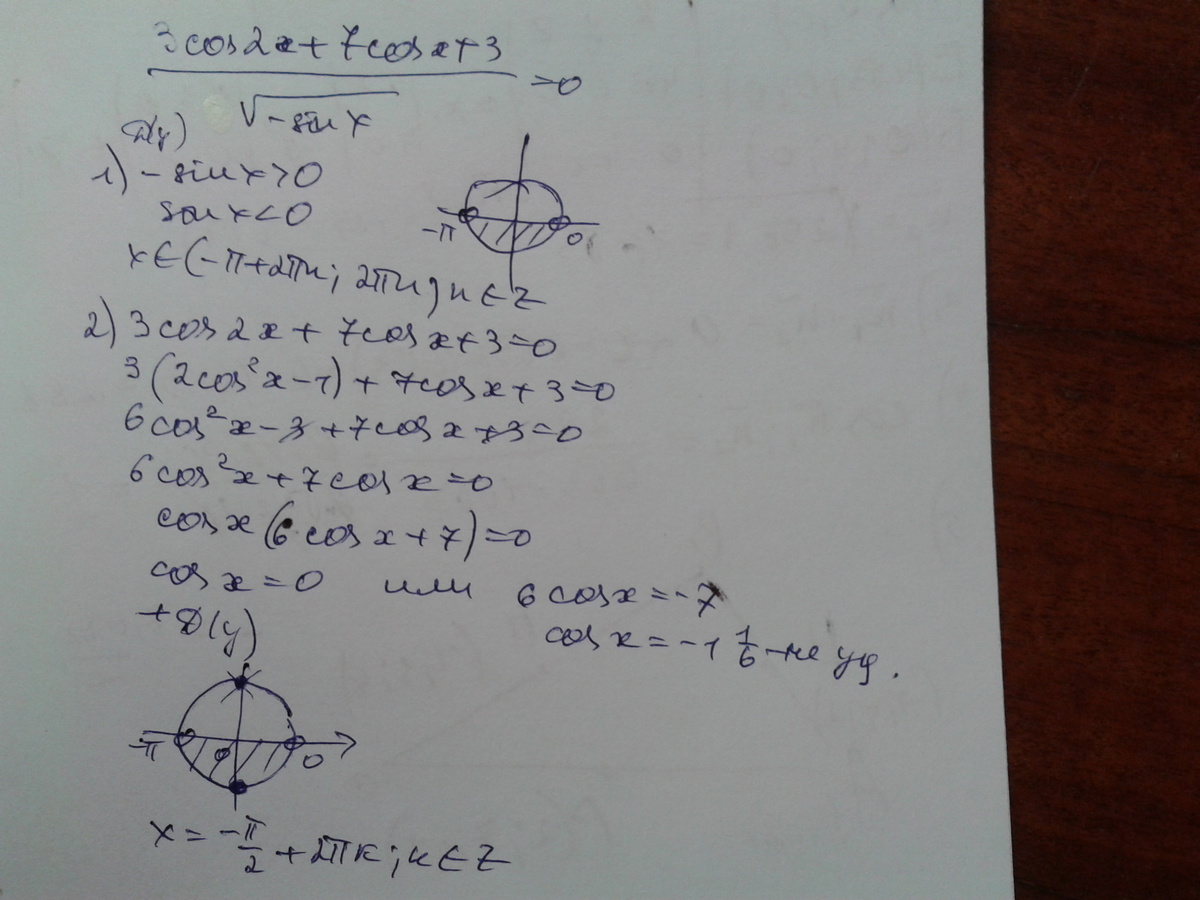 3cos2x + 7cosx + 3
=0
√-sinx
D(y)
1) -sinx>0
sinx<0
-π 0
x∈(-π+2πn; 2πn), n∈Z
2) 3cos2x + 7cosx+3=0
3(2cos²x-1) + 7cosx+3=0
6cos²x-3+7cosx+3=0
6cos²x+7cosx=0
cosx(6cosx+7)=0
cosx=0 или 6cosx=-7
+D(y) cosx=-1 1/6 - не уд.
-π 0
x=-π/2+2πk; k∈Z